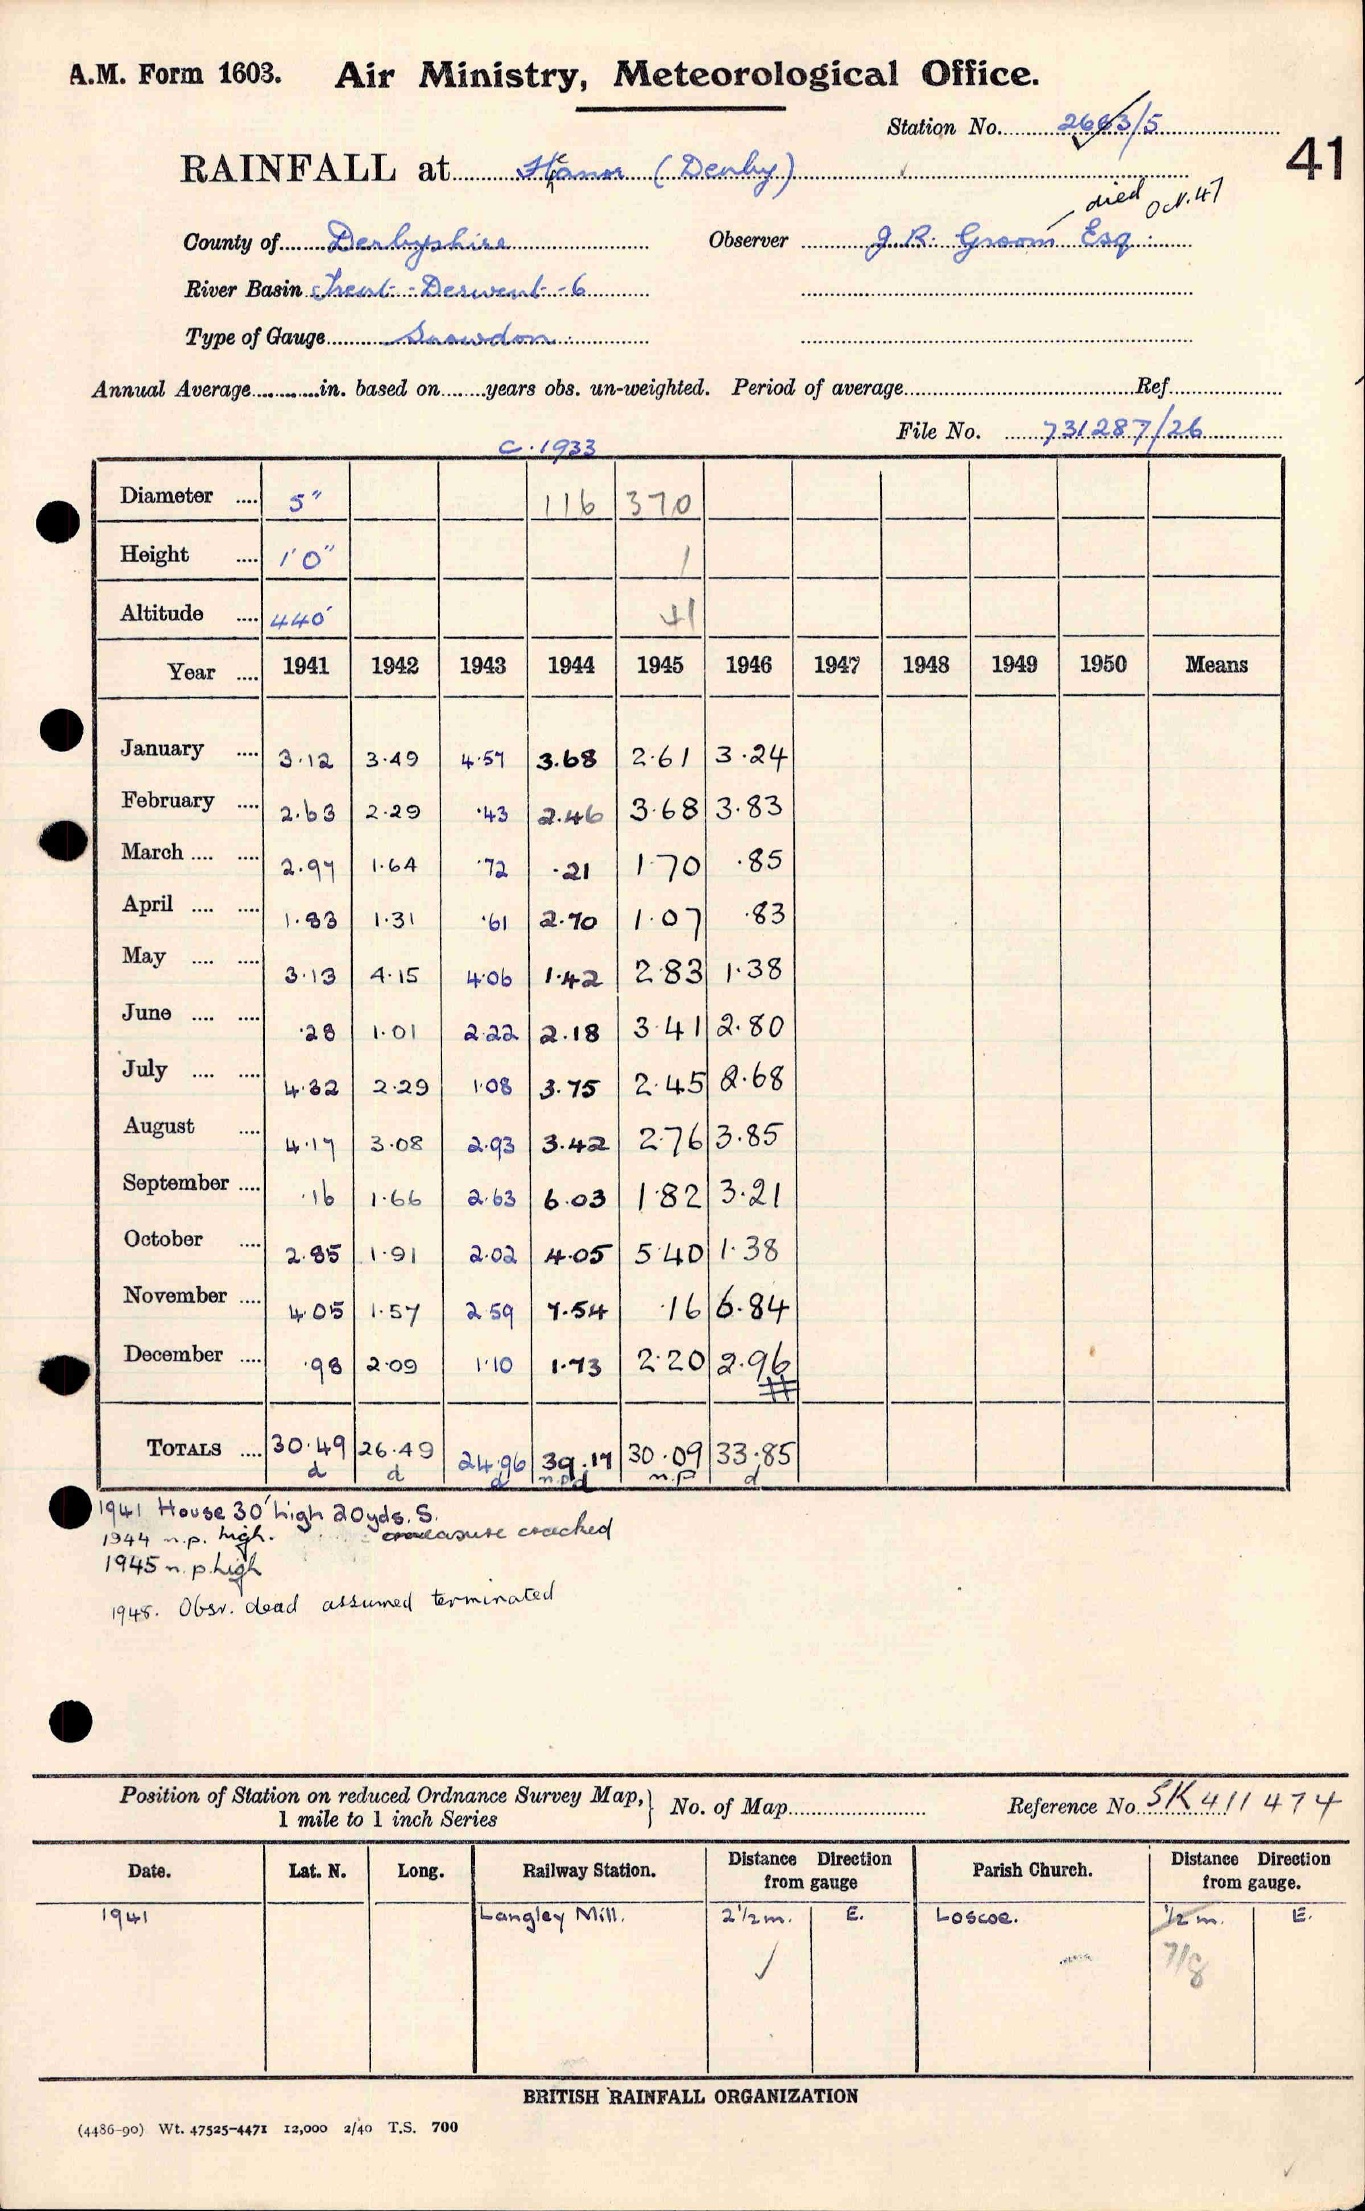 A.M. Form 1603. Air Ministry, Meteorological Office.
Station No. 2663/5
41
RAINFALL at Heanor (Denby)
died Oct. 47
County of Derbyshire Observer J. R. Groom Esq.
River Basin Trent - Derwent - 6
Type of Gauge Snowdon
Annual Average in. based on years obs. un-weighted. Period of average Ref
File No. 731287/26
C. 1933
Diameter 5" 116 370
Height 1'0" 1
Altitude 440' 41
Year 1941 1942 1943 1944 1945 1946 1947 1948 1949 1950 Means
January 3.12 3.49 4.57 3.68 2.61 3.24
February 2.63 2.29 .43 2.46 3.68 3.83
March 2.97 1.64 .72 .21 1.70 .85
April 1.83 1.31 .61 2.70 1.07 .83
May 3.13 4.15 4.06 1.42 2.83 1.38
June .28 1.01 2.22 2.18 3.41 2.80
July 4.32 2.29 1.08 3.75 2.45 2.68
August 4.17 3.08 2.93 3.42 2.76 3.85
September .16 1.66 2.63 6.03 1.82 3.21
October 2.85 1.91 2.02 4.05 5.40 1.38
November 4.05 1.57 2.59 7.54 .16 6.84
December .98 2.09 1.10 1.73 2.20 2.96
TOTALS 30.49 26.49 24.96 39.17 30.09 33.85
d d d n.p.d n.p d
1941 House 30' high 20yds. S.
1944 n.p. high. measure cracked
1945 n.p. high
1948. Obsr. dead assumed terminated
Position of Station on reduced Ordnance Survey Map, 1 mile to 1 inch Series } No. of Map Reference No SK 411474
Date. Lat. N. Long. Railway Station. Distance Direction from gauge Parish Church. Distance Direction from gauge.
1941 Langley Mill. 2½m. E. Loscoe. ½ m. E.
7/8
BRITISH RAINFALL ORGANIZATION
(4486-90) Wt. 47525-4471 12,000 2/40 T.S. 700